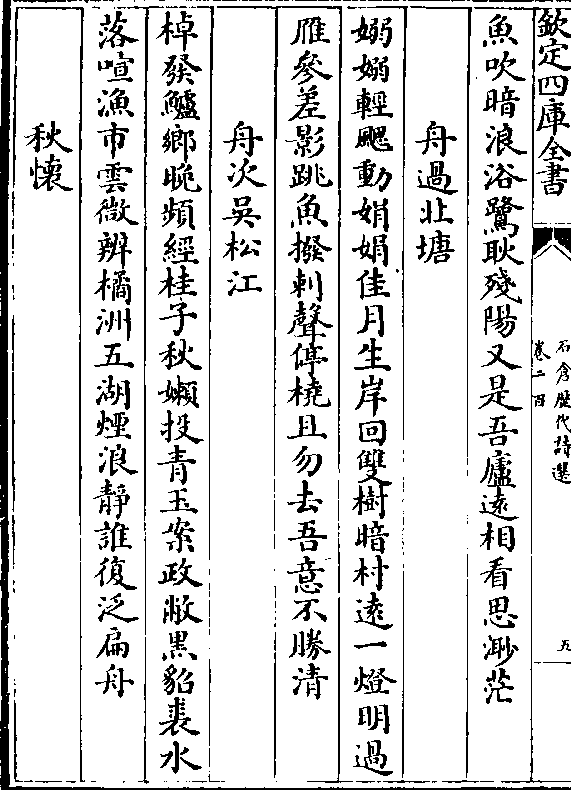 欽定四庫全書
石倉歷代詩選
卷二百
五
魚吹暗浪浴鷺耿殘陽又是吾廬遠相看思渺茫
舟過北塘
嫋嫋輕颸動娟娟佳月生岸回雙樹暗村遠一燈明過
雁參差影跳魚撥剌聲停橈且勿去吾意不勝清
舟次吳松江
棹發鱸鄉晚頻經桂子秋嬾投青玉案政敝黑貂裘水
落喧漁市雲微辨橘洲五湖煙浪靜誰復泛扁舟
秋懷